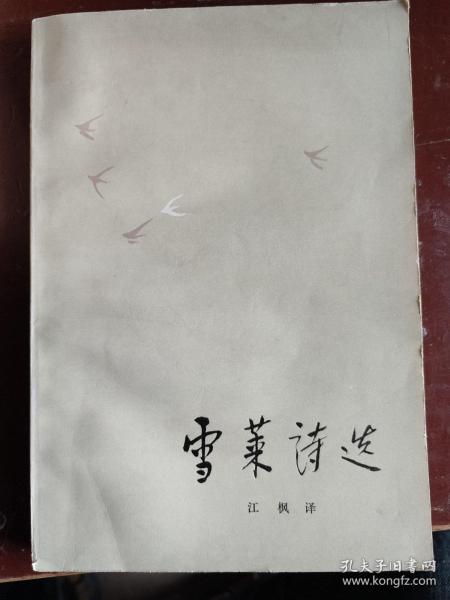 雪莱诗选
江枫译
孔夫子旧书网
www.kongfz.com